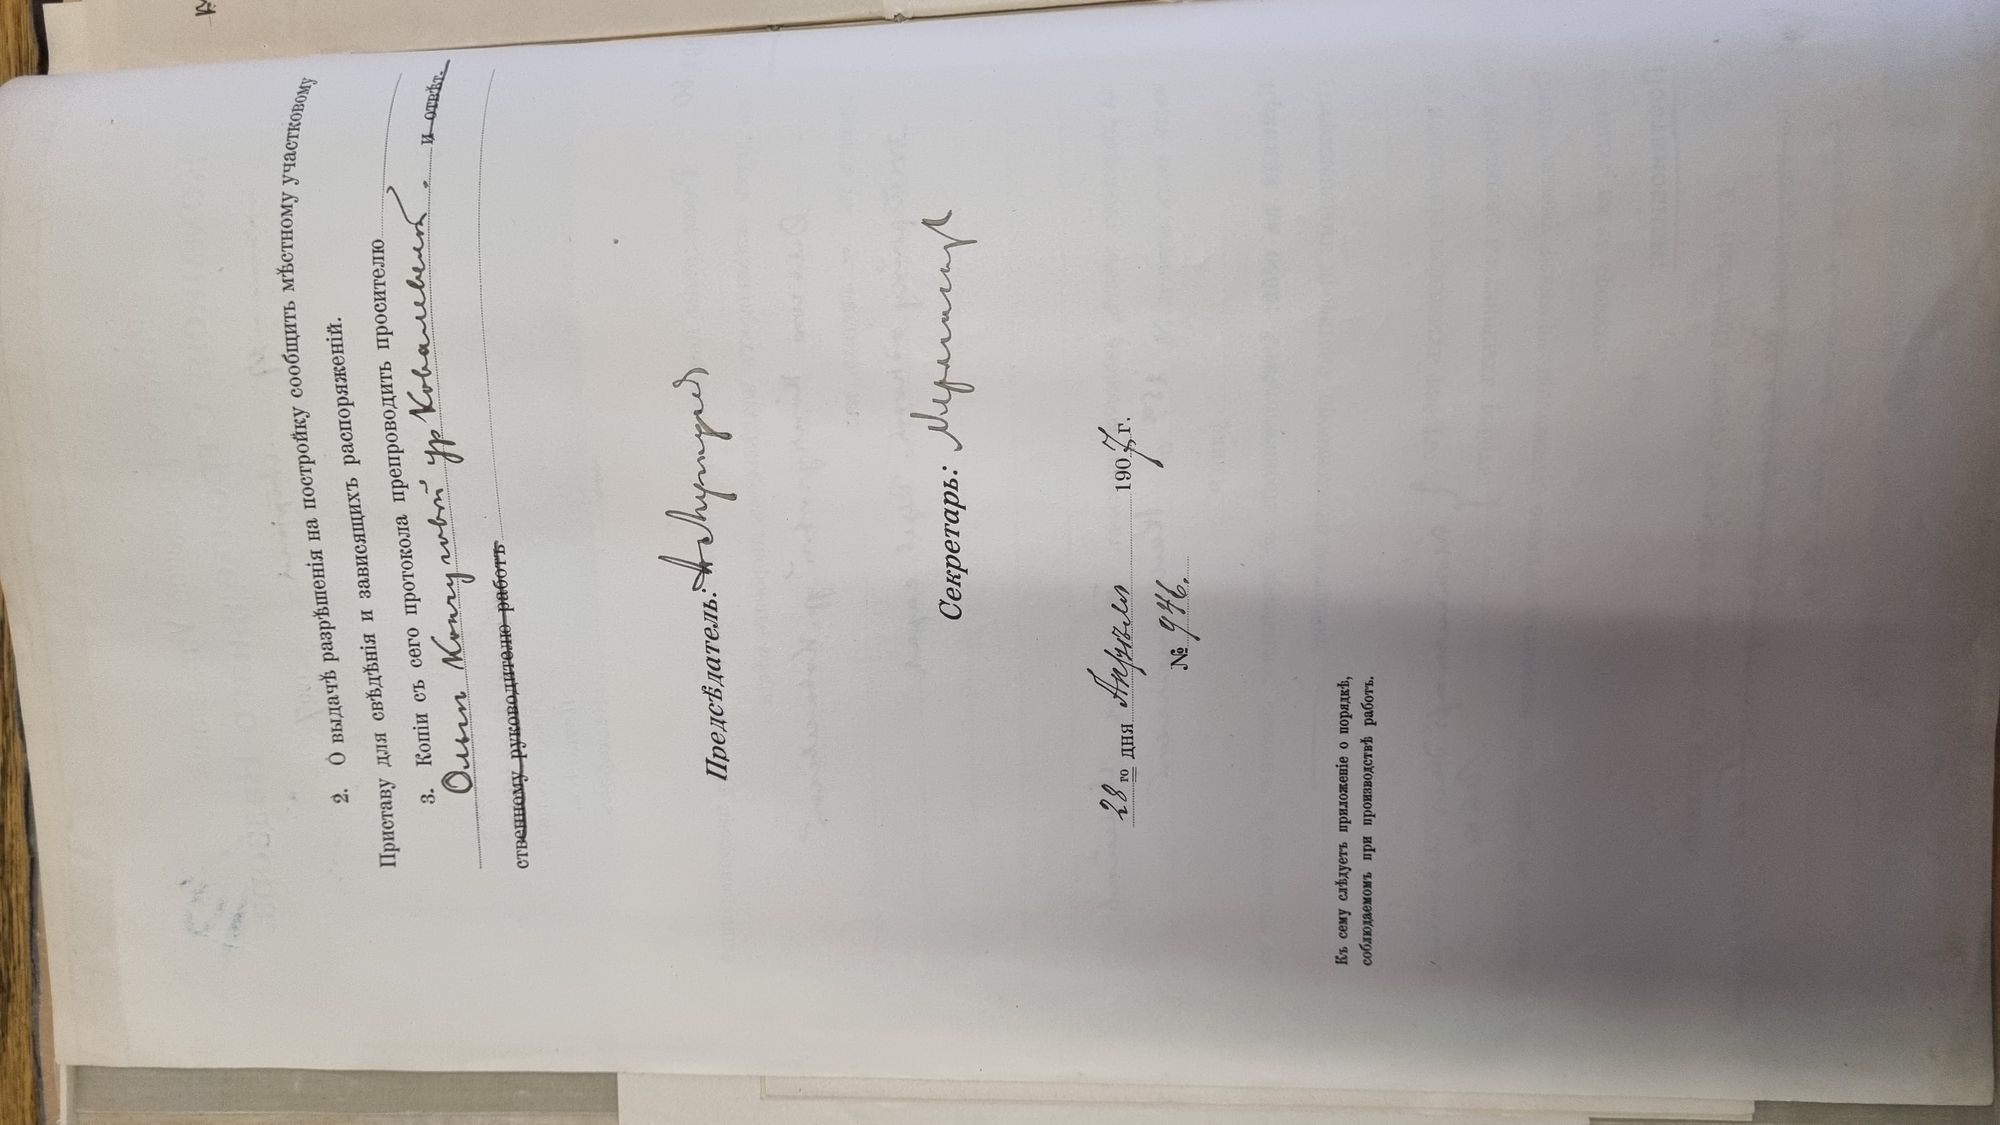 2. О выдачѣ разрѣшенія на постройку сообщить мѣстному участковому
Приставу для свѣдѣнія и зависящихъ распоряженій.
3. Копіи съ сего протокола препроводить просителю
Ольги Кончуговой ур Ковалевой. и отвѣт.
ственному руководителю работъ
Предсѣдатель:
Секретарь:
28 го дня Апрѣля 1907 г.
№ 946.
Къ сему слѣдуетъ приложеніе о порядкѣ,
соблюдаемомъ при производствѣ работъ.